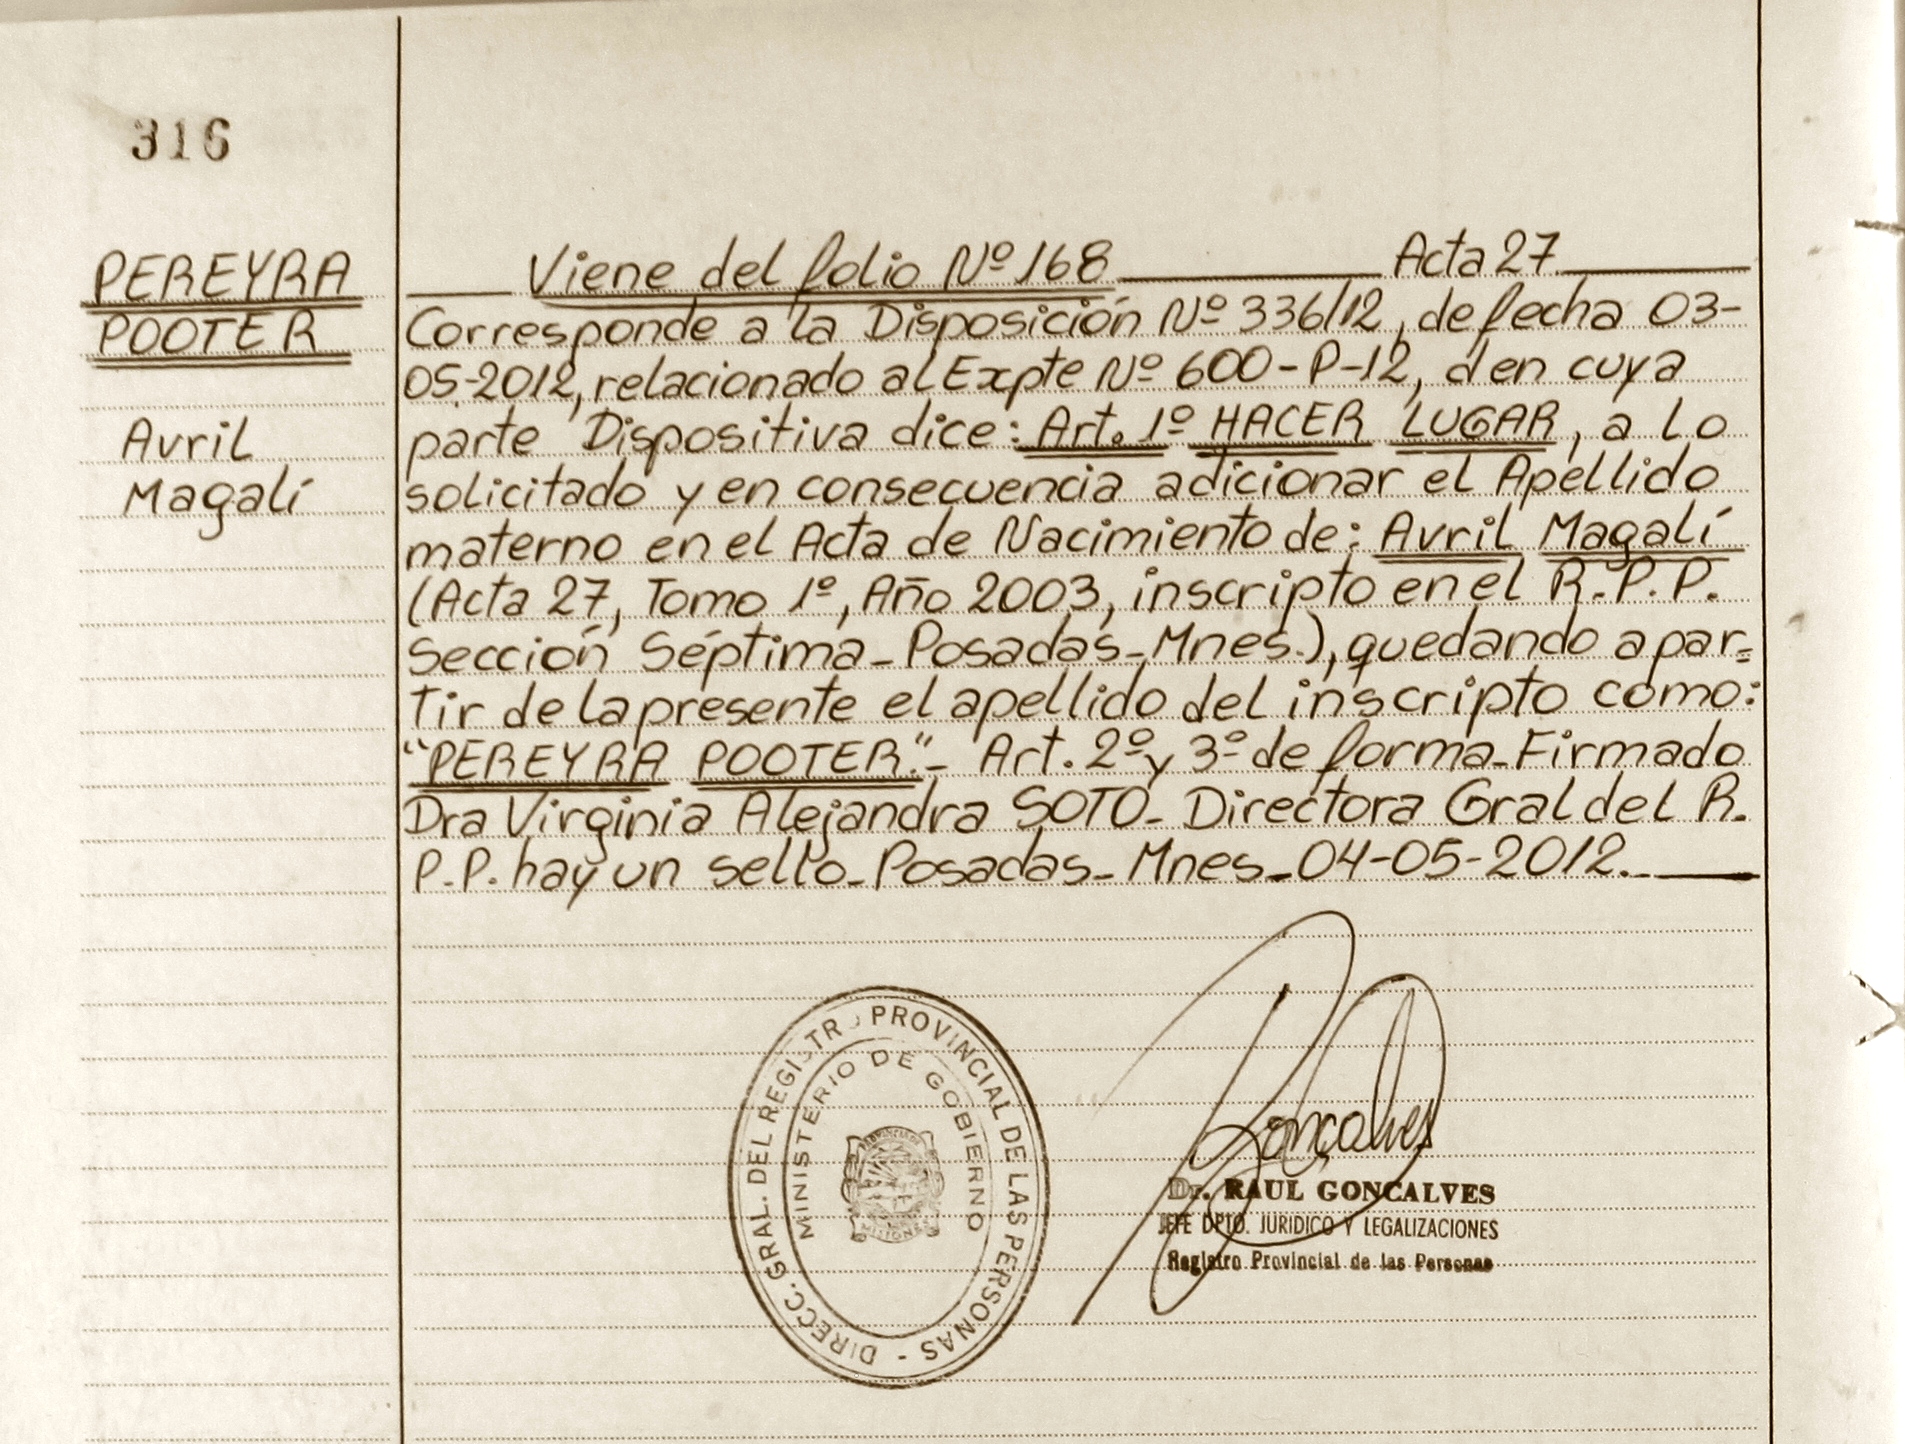 316
PEREYRA
POOTER
Avril
Magalí
Viene del folio Nº 168 Acta 27
Corresponde a la Disposición Nº 336/12, de fecha 03-
05-2012, relacionado al Expte Nº 600-P-12, d en cuya
parte Dispositiva dice: Art. 1º HACER LUGAR, a lo
solicitado y en consecuencia adicionar el Apellido
materno en el Acta de Nacimiento de: Avril Magalí
(Acta 27, Tomo 1º, Año 2003, inscripto en el R.P.P.
Sección Séptima_Posadas_Mnes.), quedando a par=
tir de la presente el apellido del inscripto como:
"PEREYRA POOTER"._ Art. 2º y 3º de forma_Firmado
Dra Virginia Alejandra SOTO_ Directora Gral del R.
P.P. hay un sello_Posadas_Mnes_04-05-2012._
DIRECC. GRAL. DEL REGISTRO PROVINCIAL DE LAS PERSONAS -
MINISTERIO DE GOBIERNO
PROVINCIA DE
MISIONES
Goncalves
Dr. RAUL GONCALVES
JEFE DPTO. JURIDICO Y LEGALIZACIONES
Registro Provincial de las Personas